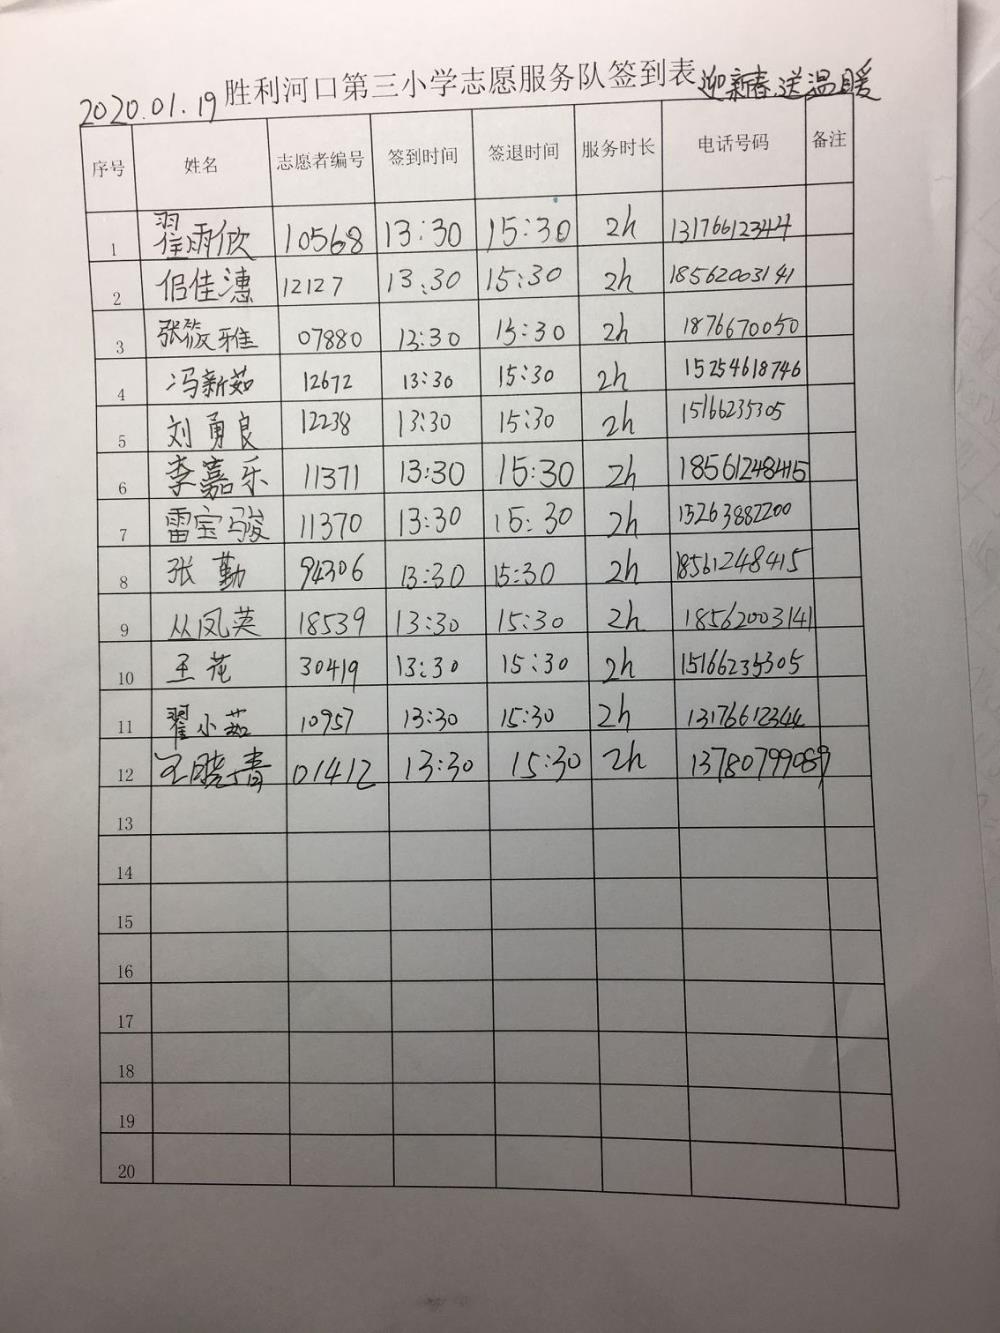 2020.01.19 胜利河口第三小学志愿服务队签到表 迎新春.送温暖
序号 姓名 志愿者编号 签到时间 签退时间 服务时长 电话号码 备注
1 翟雨欣 10568 13:30 15:30 2h 13176612344
2 佀佳潓 12127 13:30 15:30 2h 18562003141
3 张筱雅 07880 13:30 15:30 2h 1876670050
4 冯新茹 12672 13:30 15:30 2h 15254618746
5 刘勇良 12238 13:30 15:30 2h 15166235305
6 李嘉乐 11371 13:30 15:30 2h 18561248415
7 雷宝骏 11370 13:30 15:30 2h 15263882200
8 张勤 94306 13:30 15:30 2h 18561248415
9 丛凤英 18539 13:30 15:30 2h 18562003141
10 王花 30419 13:30 15:30 2h 15166235305
11 翟小茹 10957 13:30 15:30 2h 13176612344
12 王晓青 01412 13:30 15:30 2h 13780799089
13
14
15
16
17
18
19
20